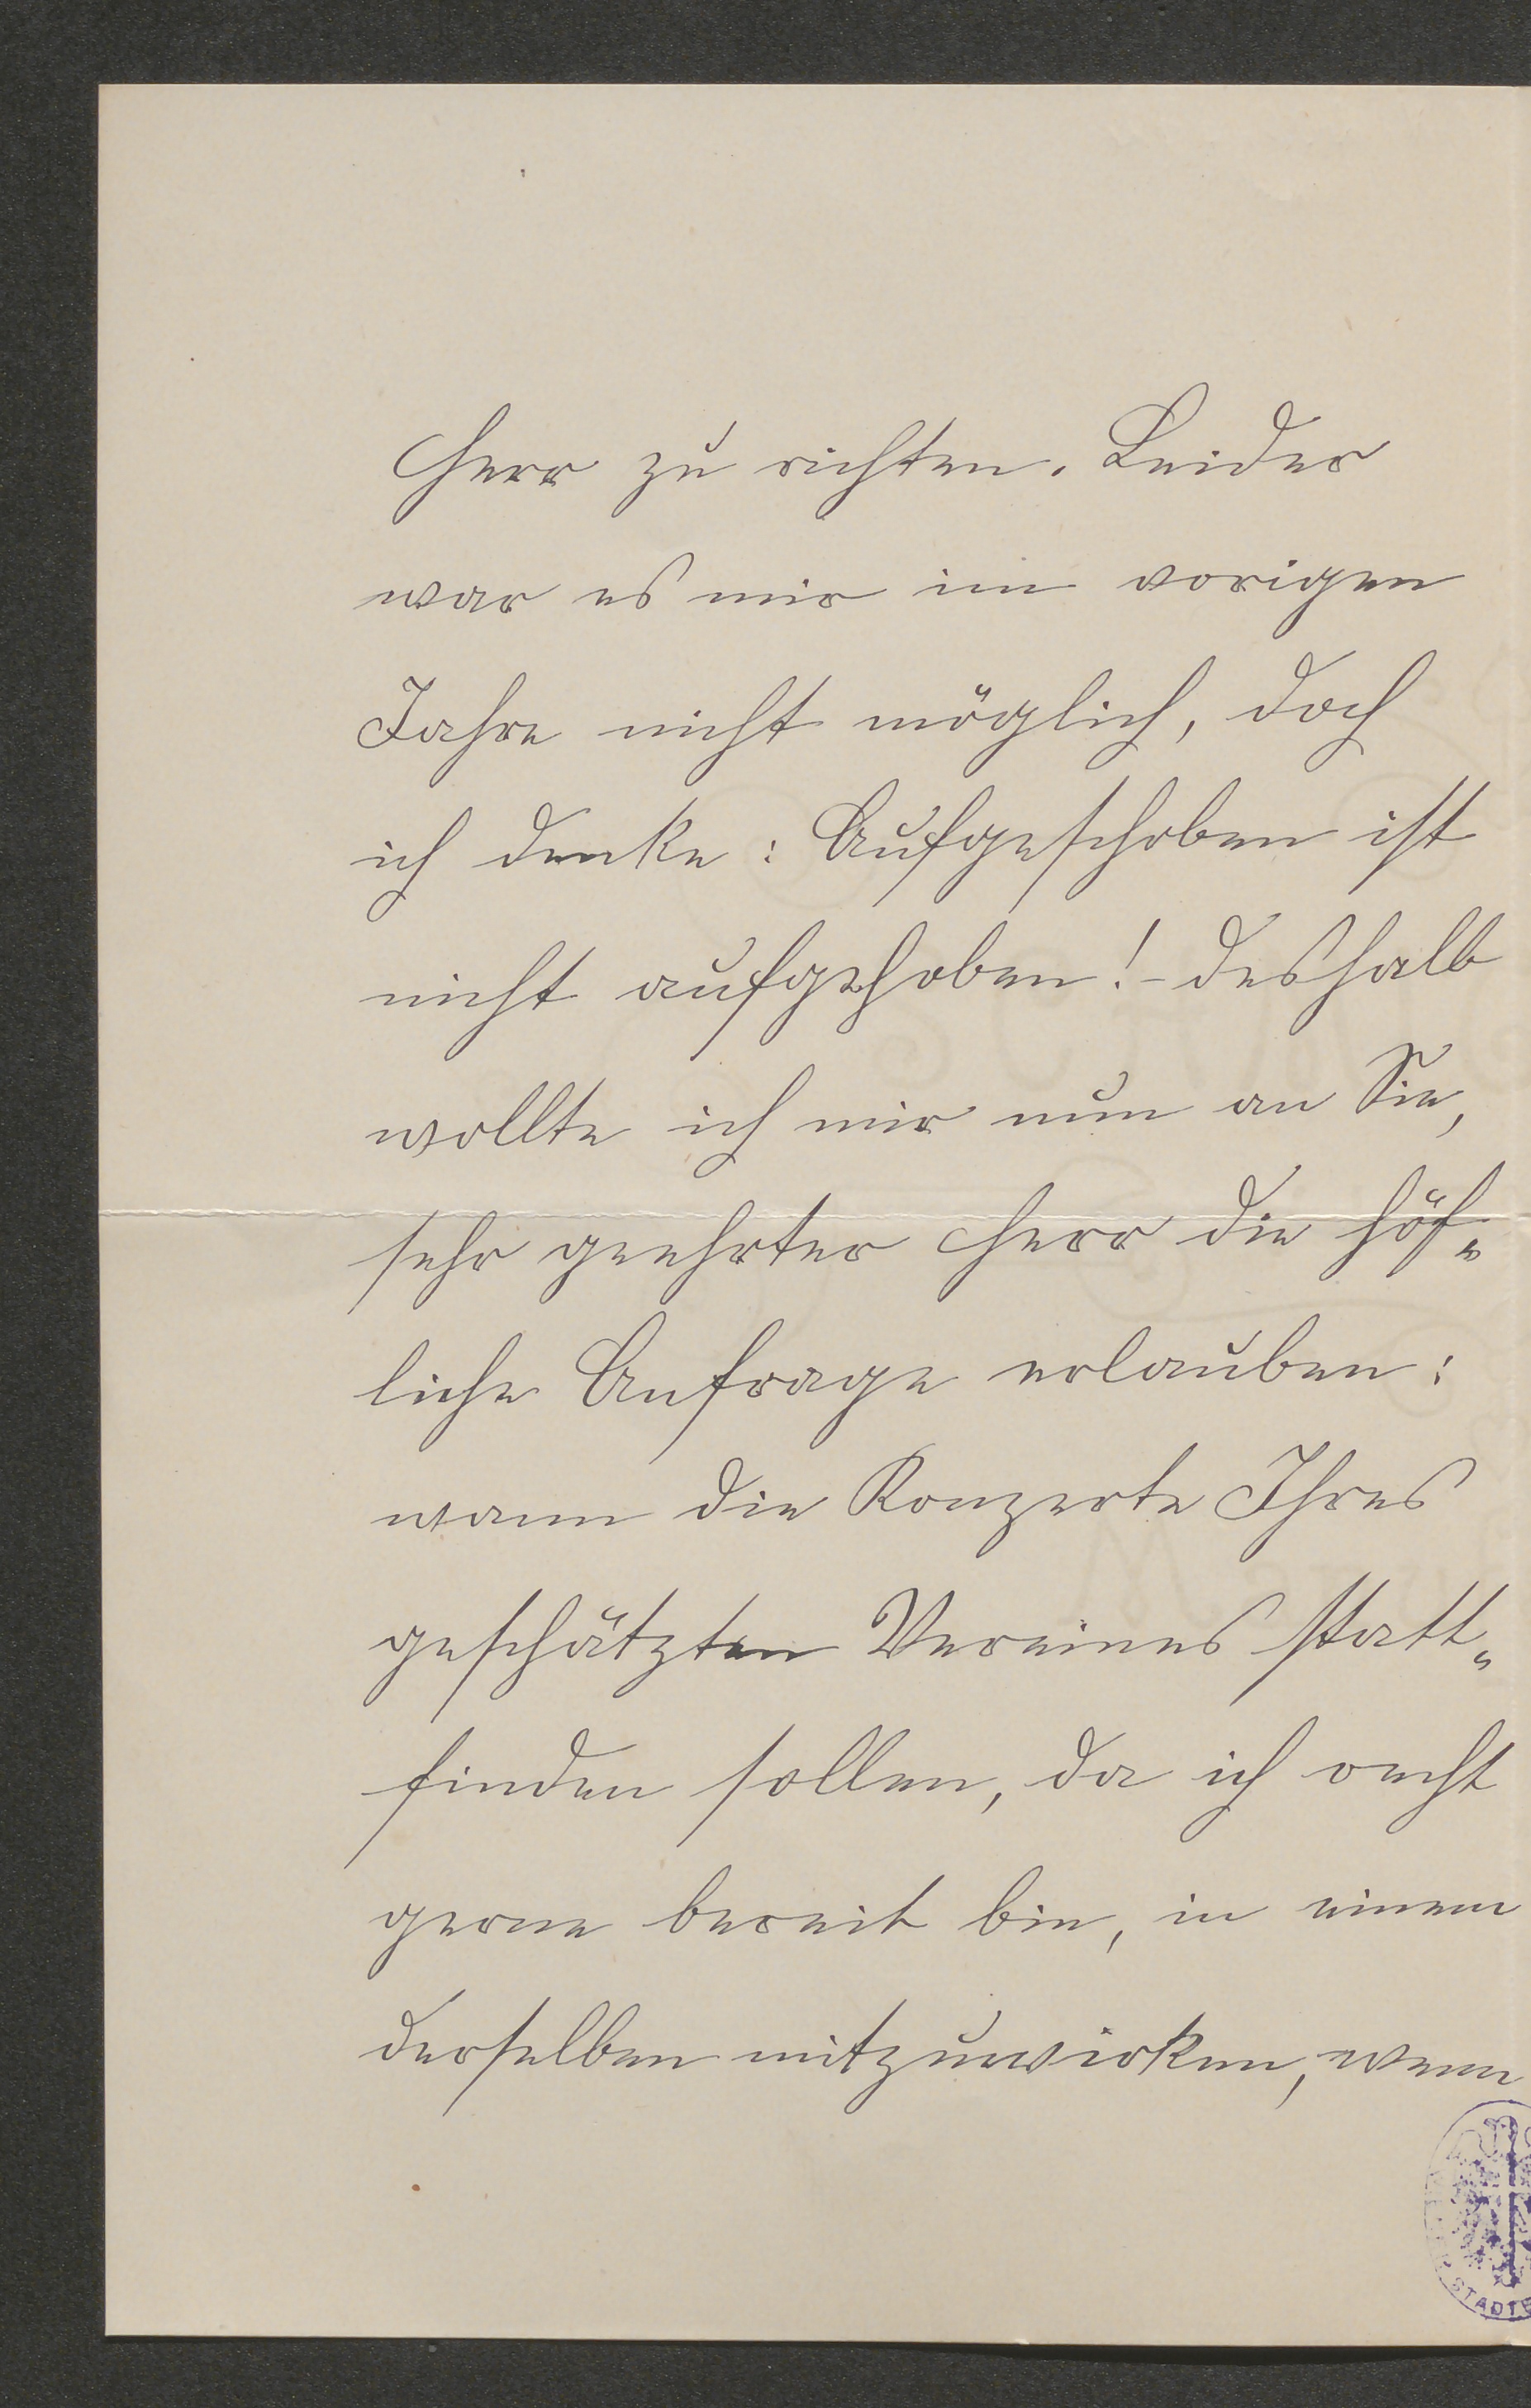 Herr zu richten. Leider
war es mir im vorigen
Jahre nicht möglich, doch
ich denke: Aufgeschoben ist
nicht aufgehoben! - deshalb
wollte ich mir nun an Sie,
sehr geehrter Herr die höf„
liche Anfrage erlauben:
wann die Konzerte Ihres
geschätzten Vereines statt„
finden sollen, da ich recht
gerne bereit bin, in einem
derselben mitzuwirken, wenn